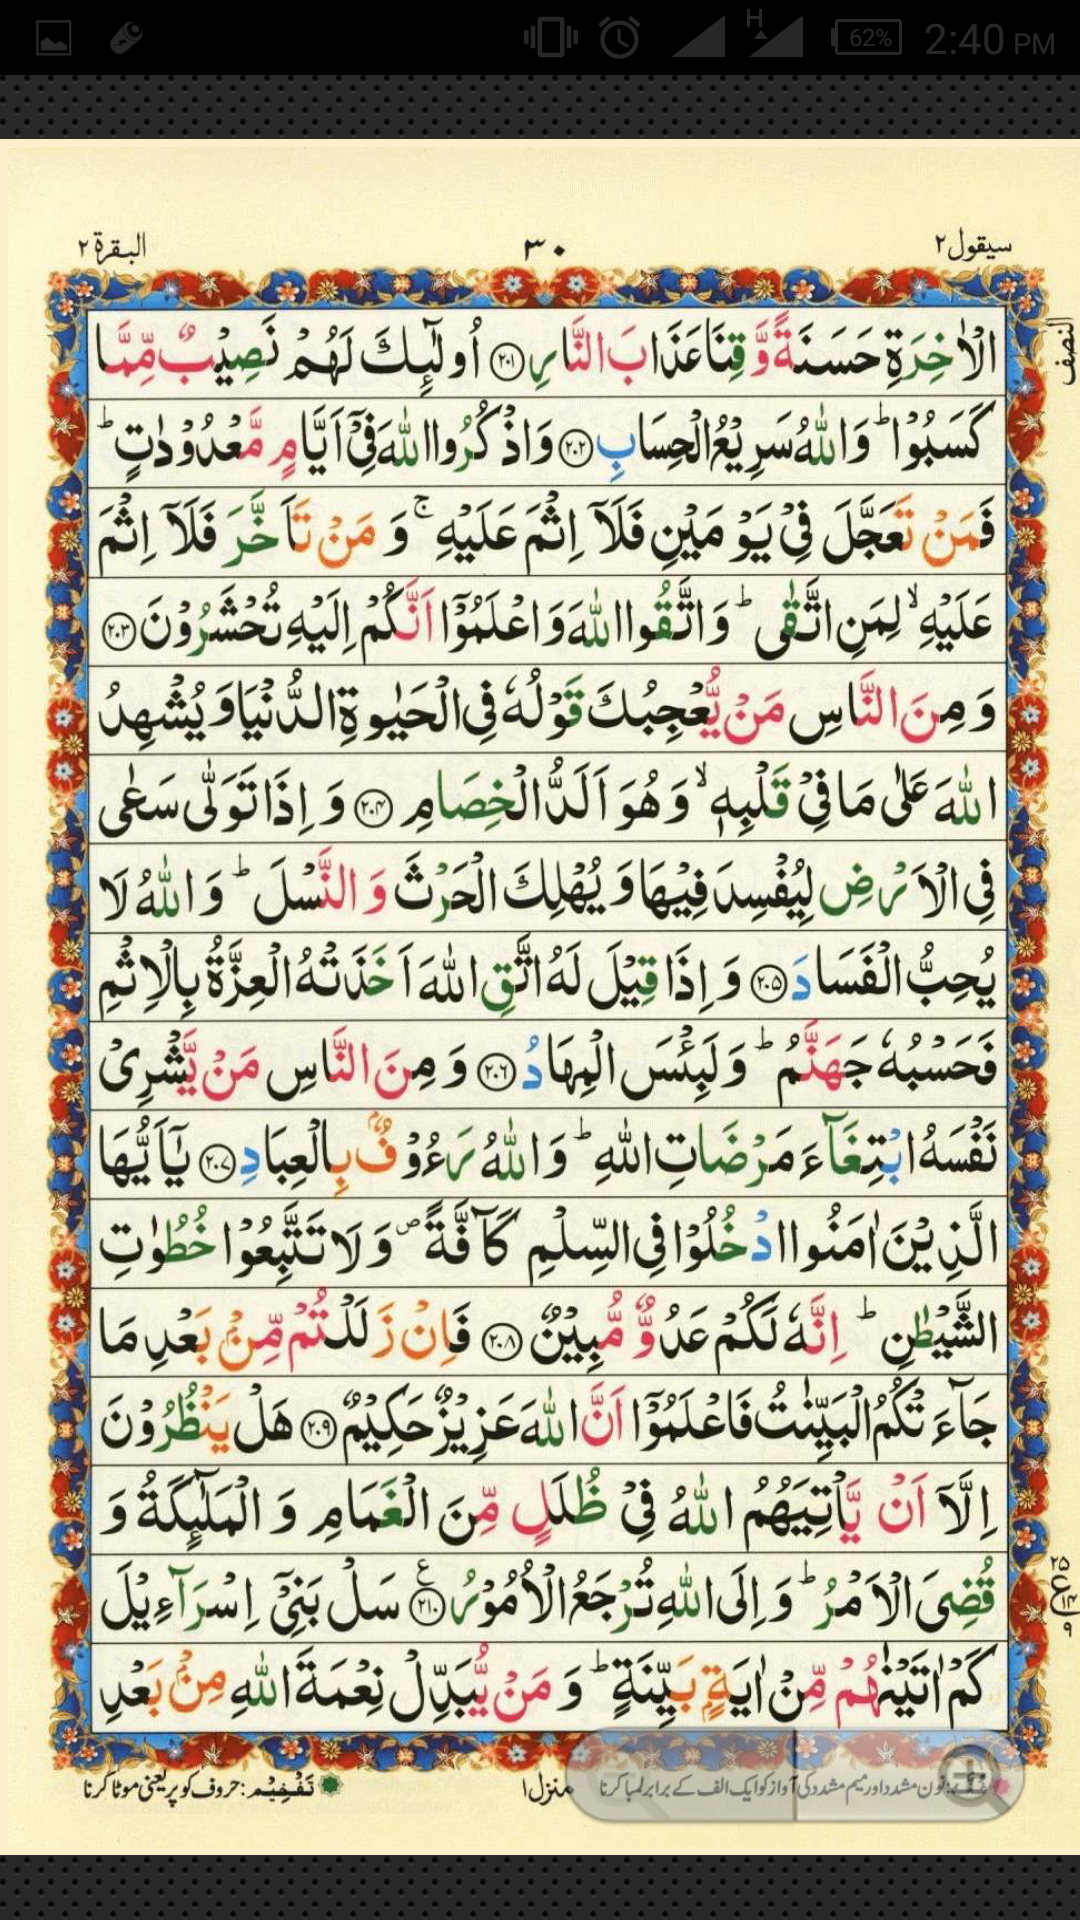 H
62%
2:40 PM
سيقول ٢
٣٠
البقرة ٢
النصف
الْاٰخِرَةِ حَسَنَةً وَّقِنَا عَذَابَ النَّارِ ٢٠١ اُولٰٓئِكَ لَهُمْ نَصِيْبٌ مِّمَّا
كَسَبُوْا ؕ وَاللّٰهُ سَرِيْعُ الْحِسَابِ ٢٠٢ وَاذْكُرُوا اللّٰهَ فِيْٓ اَيَّامٍ مَّعْدُوْدٰتٍ ؕ
فَمَنْ تَعَجَّلَ فِيْ يَوْمَيْنِ فَلَآ اِثْمَ عَلَيْهِ ۚ وَ مَنْ تَاَخَّرَ فَلَآ اِثْمَ
عَلَيْهِ ۙ لِمَنِ اتَّقٰى ؕ وَاتَّقُوا اللّٰهَ وَاعْلَمُوْٓا اَنَّكُمْ اِلَيْهِ تُحْشَرُوْنَ ٢٠٣
وَمِنَ النَّاسِ مَنْ يُّعْجِبُكَ قَوْلُهٗ فِي الْحَيٰوةِ الدُّنْيَا وَيُشْهِدُ
اللّٰهَ عَلٰى مَا فِيْ قَلْبِهٖ ۙ وَهُوَ اَلَدُّ الْخِصَامِ ٢٠٤ وَ اِذَا تَوَلّٰى سَعٰى
فِي الْاَرْضِ لِيُفْسِدَ فِيْهَا وَيُهْلِكَ الْحَرْثَ وَ النَّسْلَ ؕ وَاللّٰهُ لَا
يُحِبُّ الْفَسَادَ ٢٠٥ وَ اِذَا قِيْلَ لَهُ اتَّقِ اللّٰهَ اَخَذَتْهُ الْعِزَّةُ بِالْاِثْمِ
فَحَسْبُهٗ جَهَنَّمُ ؕ وَلَبِئْسَ الْمِهَادُ ٢٠٦ وَمِنَ النَّاسِ مَنْ يَّشْرِيْ
نَفْسَهُ ابْتِغَآءَ مَرْضَاتِ اللّٰهِ ؕ وَاللّٰهُ رَءُوْفٌۢ بِالْعِبَادِ ٢٠٧ يٰٓاَيُّهَا
الَّذِيْنَ اٰمَنُوا ادْخُلُوْا فِي السِّلْمِ كَآفَّةً ۪ وَلَا تَتَّبِعُوْا خُطُوٰتِ
الشَّيْطٰنِ ؕ اِنَّهٗ لَكُمْ عَدُوٌّ مُّبِيْنٌ ٢٠٨ فَاِنْ زَلَلْتُمْ مِّنْۢ بَعْدِ مَا
جَآءَتْكُمُ الْبَيِّنٰتُ فَاعْلَمُوْٓا اَنَّ اللّٰهَ عَزِيْزٌ حَكِيْمٌ ٢٠٩ هَلْ يَنْظُرُوْنَ
اِلَّآ اَنْ يَّاْتِيَهُمُ اللّٰهُ فِيْ ظُلَلٍ مِّنَ الْغَمَامِ وَ الْمَلٰٓئِكَةُ وَ
قُضِيَ الْاَمْرُ ؕ وَ اِلَى اللّٰهِ تُرْجَعُ الْاُمُوْرُ ٢١٠ سَلْ بَنِيْٓ اِسْرَآءِيْلَ
كَمْ اٰتَيْنٰهُمْ مِّنْ اٰيَةٍۭ بَيِّنَةٍ ؕ وَ مَنْ يُّبَدِّلْ نِعْمَةَ اللّٰهِ مِنْۢ بَعْدِ
نون مشدد اور میم مشدد کی آواز کو ایک الف کے برابر لمبا کرنا
منزل ١
تَفْخِيْم : حروف کو پُر یعنی موٹا کرنا